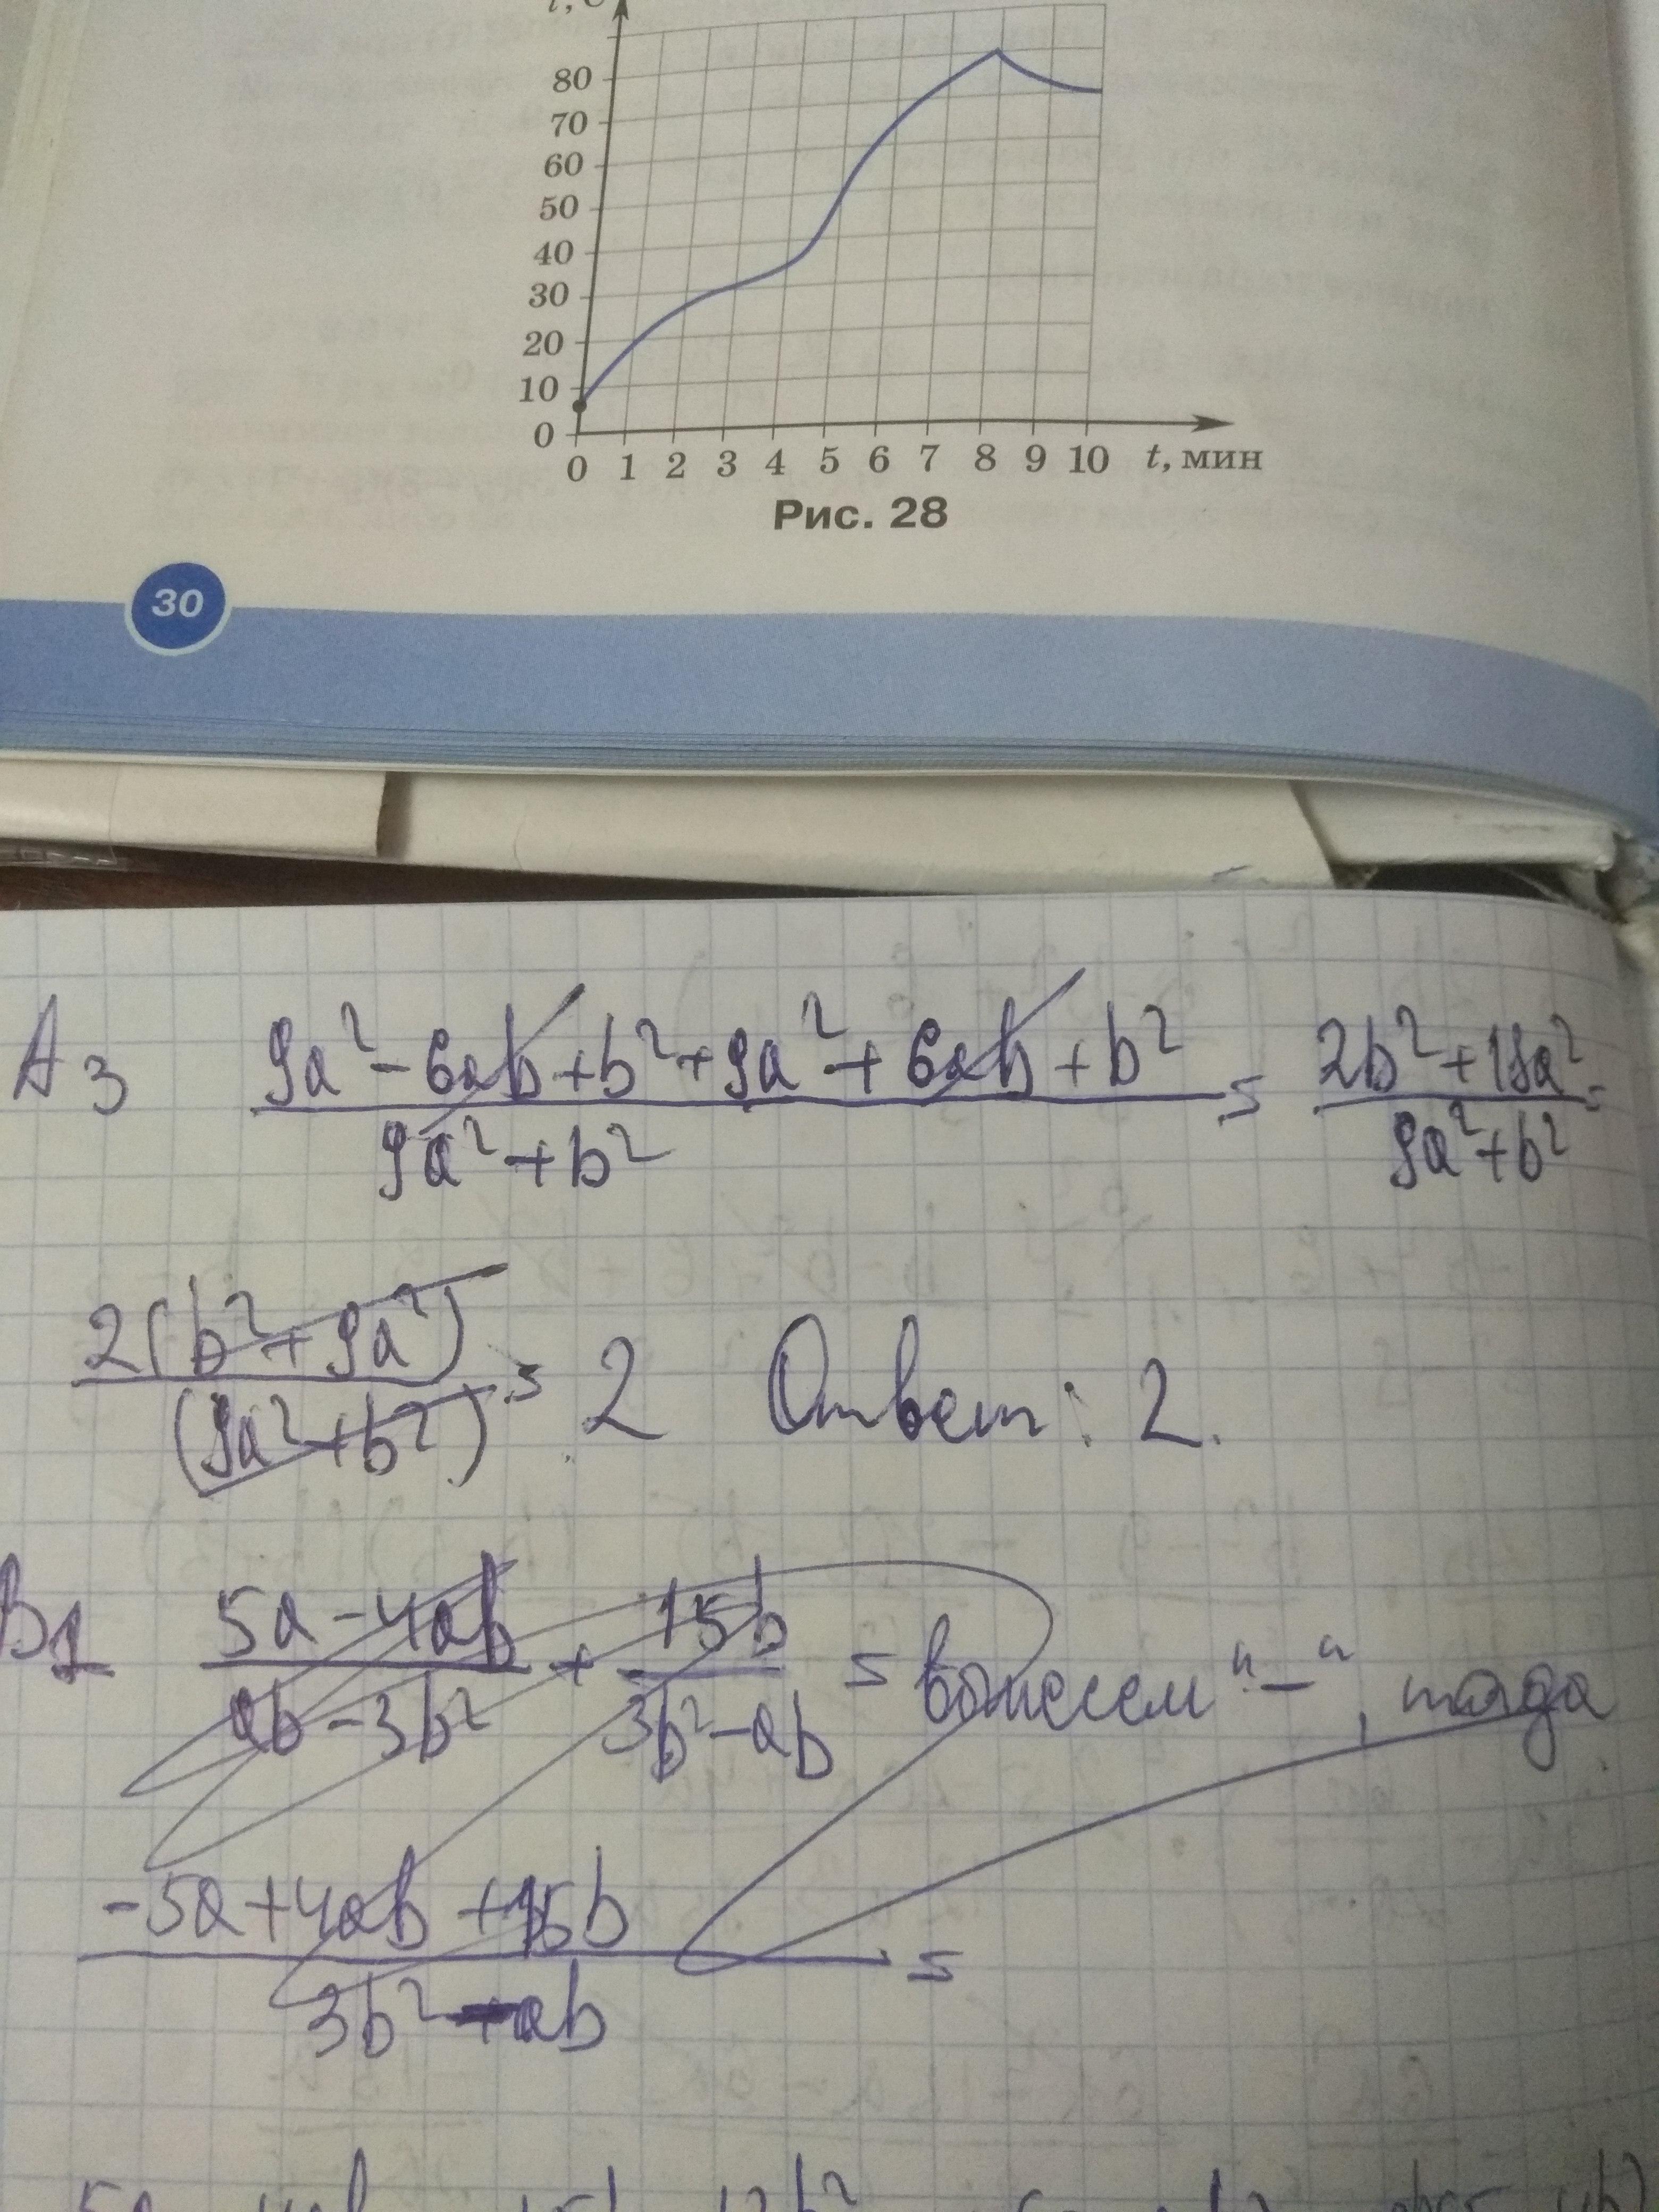 80
70
60
50
40
30
20
10
0
0 1 2 3 4 5 6 7 8 9 10 t, мин
Рис. 28
30
А3 (9a² - 6ab + b² + 9a² + 6ab + b²)/(9a² + b²) = (2b² + 18a²)/(9a² + b²) =
2(b² + 9a²)/(9a² + b²) = 2 Ответ: 2.
В1 (5a - 4ab)/(ab - 3b²) + 15b/(3b² - ab) = вынесем "-", тогда
(-5a + 4ab + 15b)/(3b² - ab) =